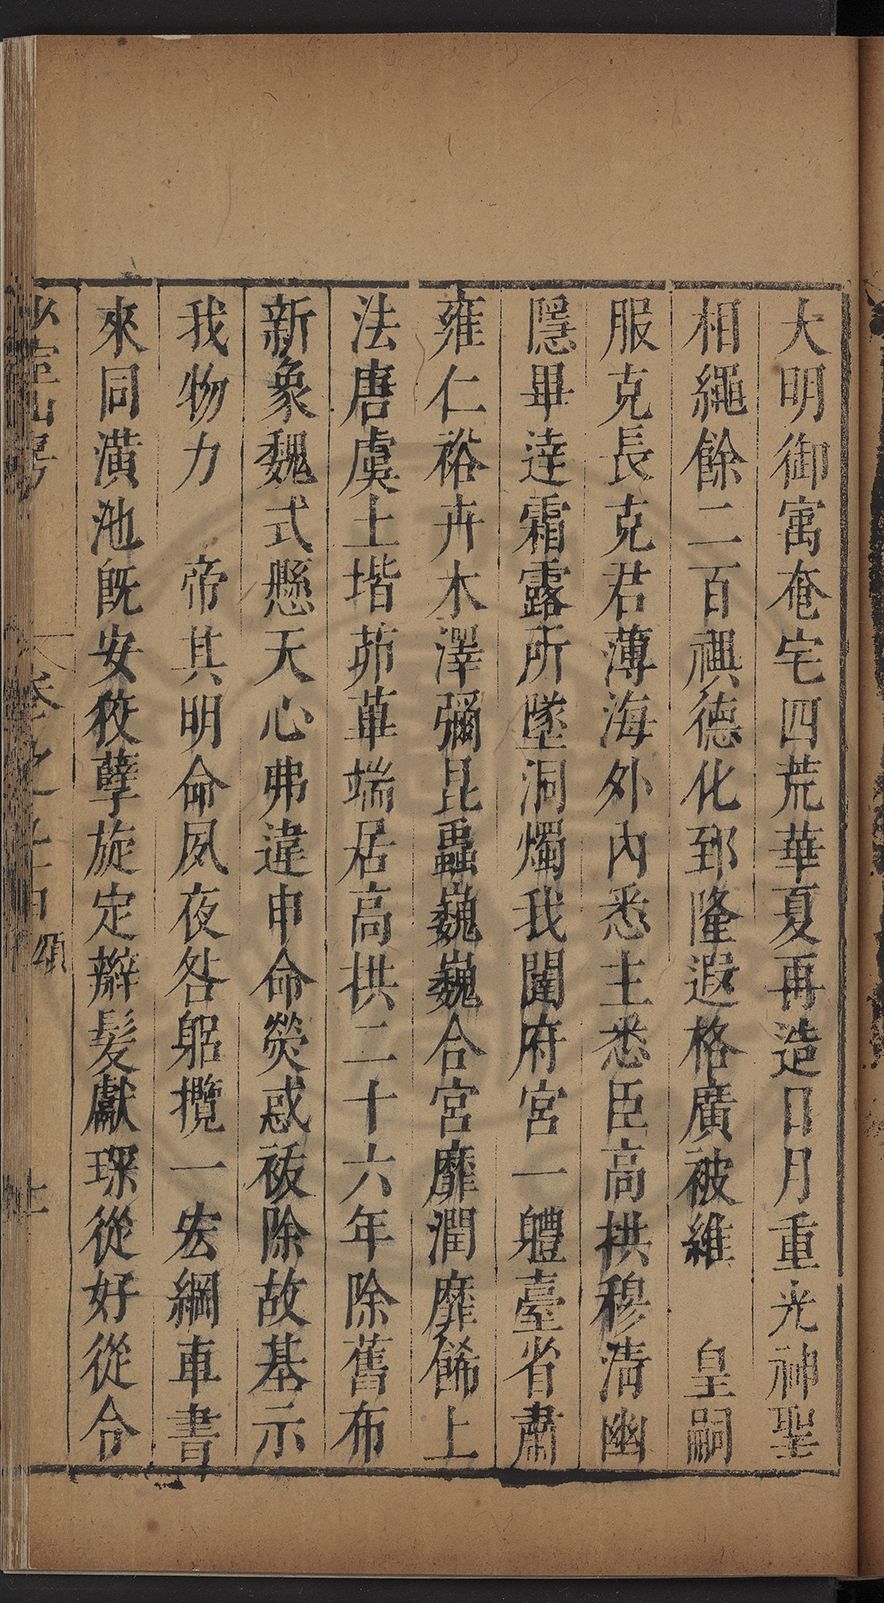 大明御寓奄宅四荒華夏再造日月重光神聖
相繩餘二百禩德化郅隆遐格廣被維　皇嗣
服克長克君薄海外內悉主悉臣高拱穆清幽
隱畢達霜露所墜洞燭我闥府宮一軆臺省肅
雍仁裕卉木澤彌昆蟲巍巍合宮靡潤靡餙上
法唐虞土堦茆葺端居高拱二十六年除舊布
新象魏式懸天心弗違申命熒惑祓除故基示
我物力　帝其明命夙夜咎躬攬一宏綱車書
來同潢池旣安狡孽旋定辮髮獻琛從好從合
少室山房　卷之　頌